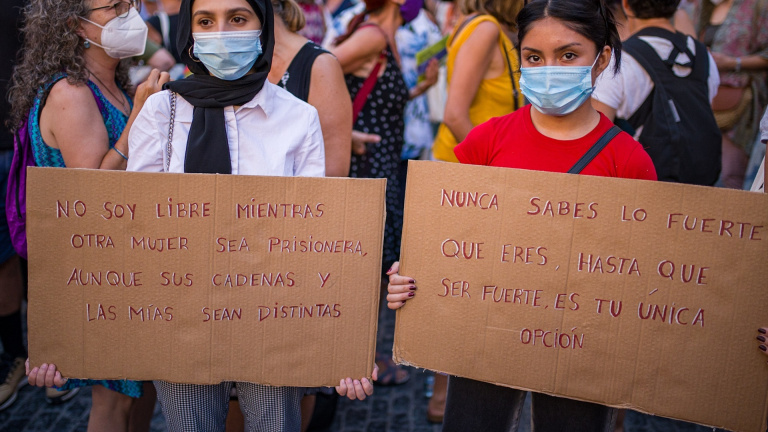 NO SOY LIBRE MIENTRAS
OTRA MUJER SEA PRISIONERA,
AUNQUE SUS CADENAS Y
LAS MÍAS SEAN DISTINTAS
NUNCA SABES LO FUERTE
QUE ERES, HASTA QUE
SER FUERTE, ES TU ÚNICA
OPCIÓN